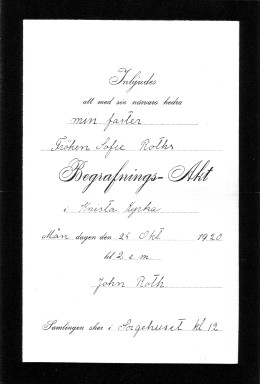 Inbjudes
att med sin närvaro hedra
min faster
Fröken Sofie Roths
Begrafnings-Akt
i Knista Kyrka
Mån dagen den 25 Okt 1920
kl 2 e m
John Roth
Samlingen sker i Sorgehuset kl 12